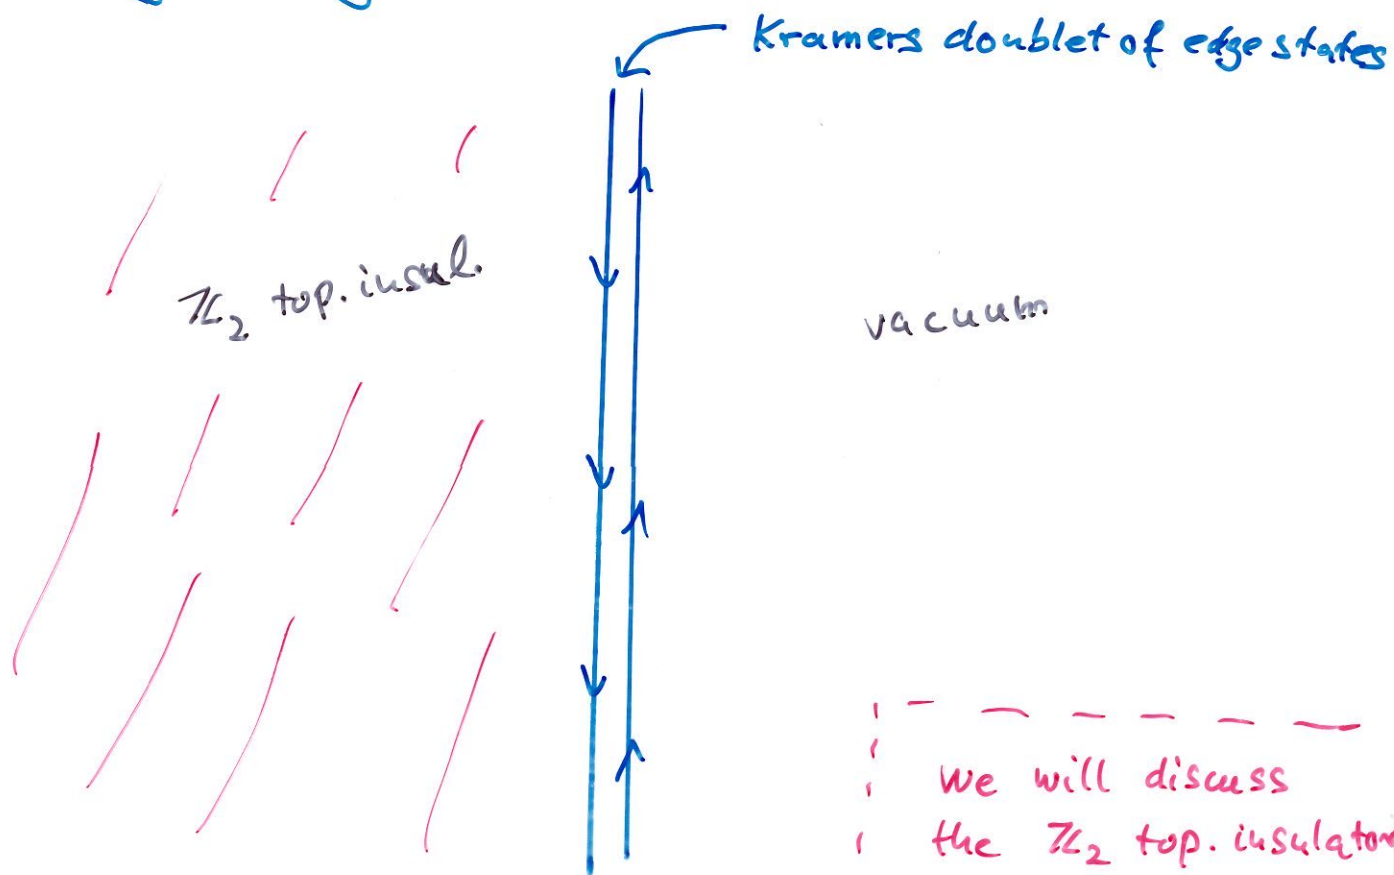 Kramers doublet of edge states
ℤ₂ top. insul.
vacuum
we will discuss
the ℤ₂ top. insulator